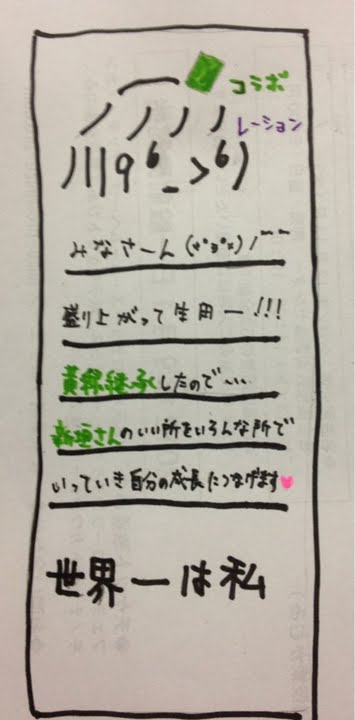 コラボ
レーション
みなさーん(*°3°*)/ーー
盛り上がって生用ー!!!
黄緑継承したので…
新垣さんのいい所をいろんな所で
いっていき自分の成長につなげます
世界一は私